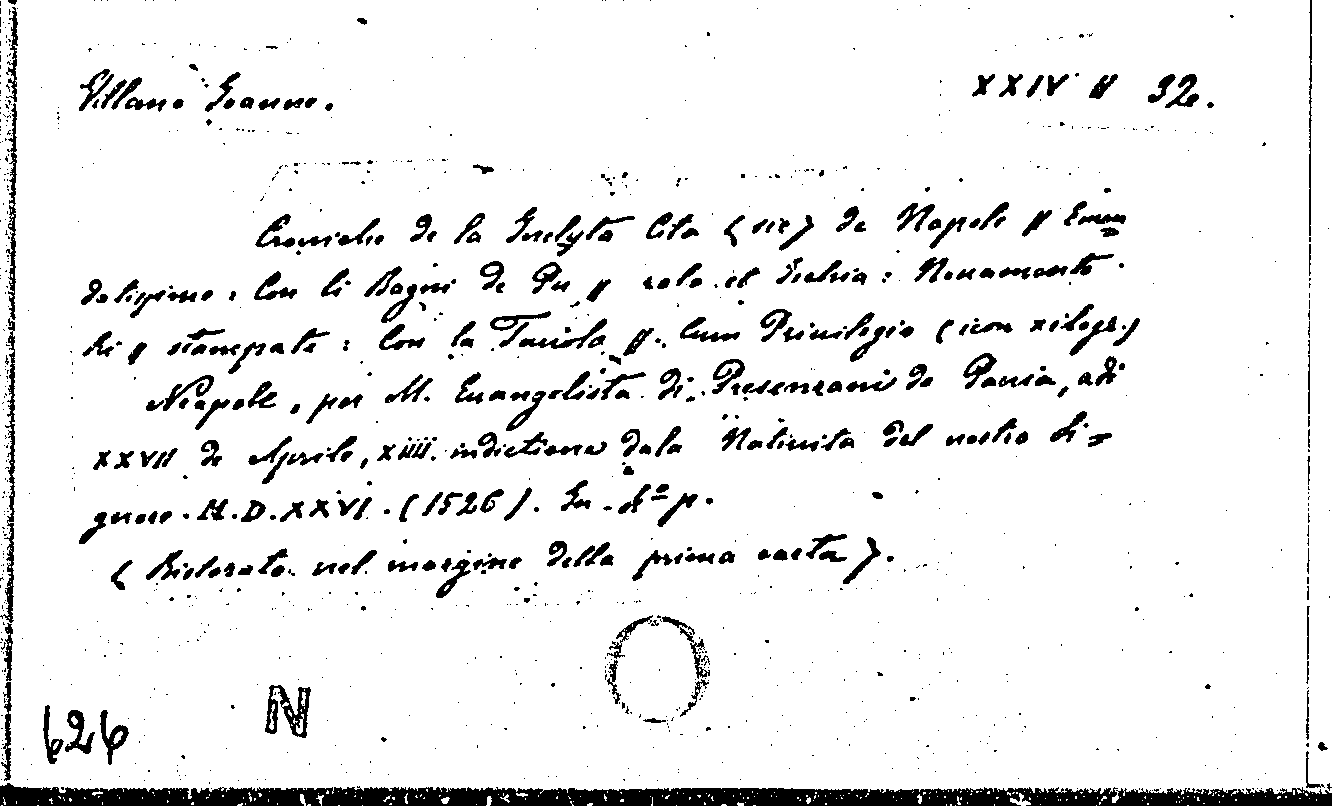 Villano Joanne. XXIV // 32.
Croniche de la Inclyta Cita (sic) de Napole // Emen
datissime: Con li Bagni de Pu // zolo et Ischia: Novamente
Ri // stampate: Con la Tavola //. Cum Privilegio (icon xilogr.)
Neapole, per M. Evangelista di Presenzani de Pavia, adi
XXVII de Aprile, XIIII. indictione dala Nativita del nostro Si=
gnore. M.D.XXVI. (1526). In. 4º p.
(Ristorato nel margine della prima carta).
626 N